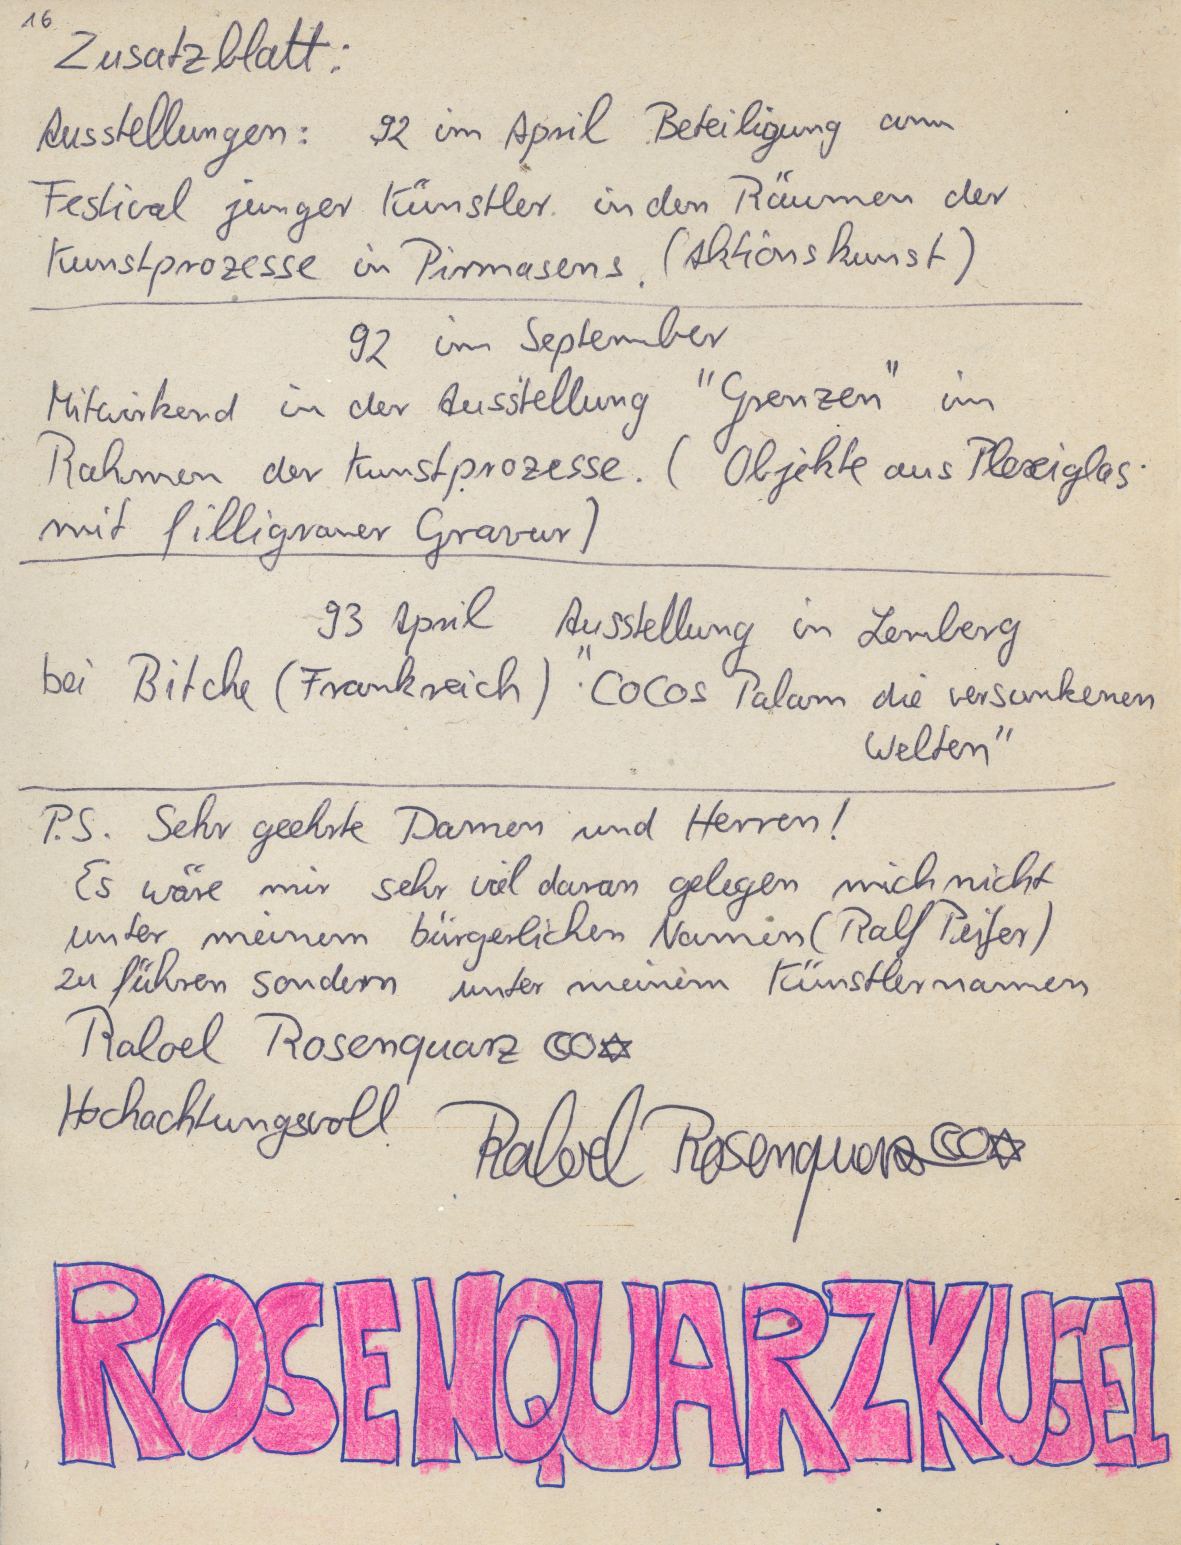 16
Zusatzblatt:
Ausstellungen: 92 im April Beteiligung am
Festival junger Künstler in den Räumen der
Kunstprozesse in Pirmasens. (Aktionskunst)
92 im September
Mitwirkend in der Ausstellung "Grenzen" im
Rahmen der Kunstprozesse. (Objekte aus Plexiglas
mit filligraner Gravur)
93 April Ausstellung in Lemberg
bei Bitche (Frankreich) "COCOS Palam die versunkenen
Welten"
P.S. Sehr geehrte Damen und Herren!
Es wäre mir sehr viel daran gelegen mich nicht
unter meinem bürgerlichen Namen (Ralf Peifer)
zu führen sondern unter meinem Künstlernamen
Raloel Rosenquarz
Hochachtungsvoll Raloel Rosenquarz
ROSENQUARZKUSEL